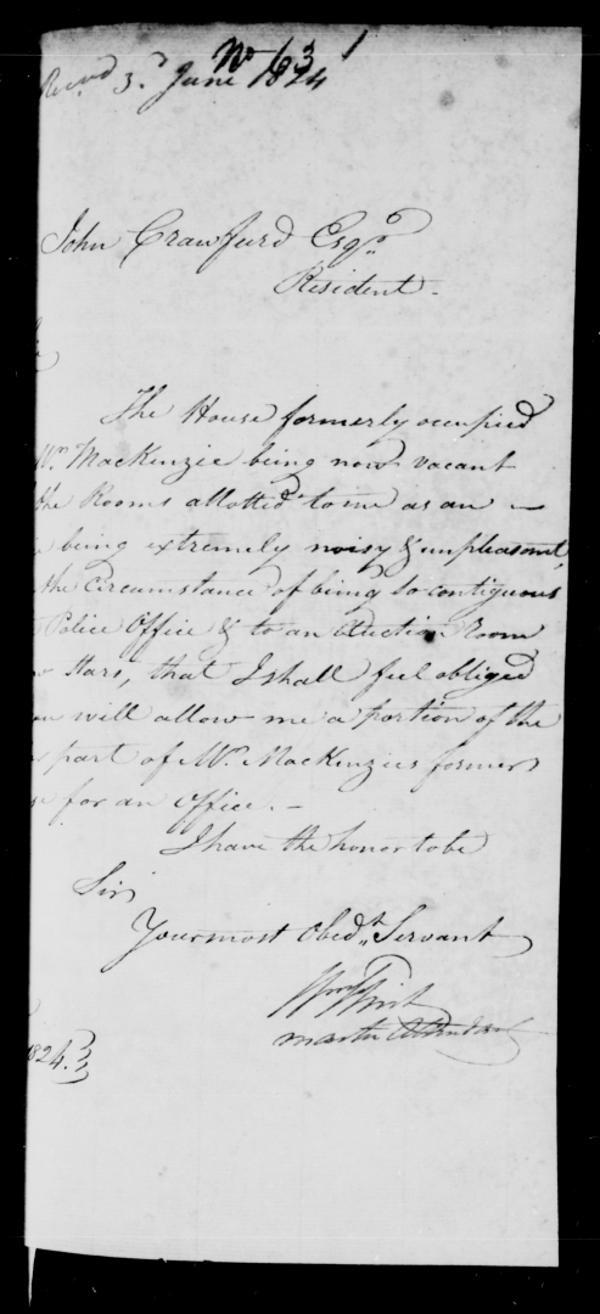 No 63
Recvd 3d June 1824
John Crawfurd Esqr.
Resident.
The House formerly occupied
Mr. MacKenzie being now vacant
the Rooms allotted to me as an
being extremely noisy & unpleasant,
the circumstance of being so contiguous
Police Office & to an Auction Room
that I shall feel obliged
will allow me a portion of the
part of Mr. MacKenzies former
for an office.
I have the honor to be
Sir
Your most Obedt. Servant
Wm Flint
Master Attendant
1824.